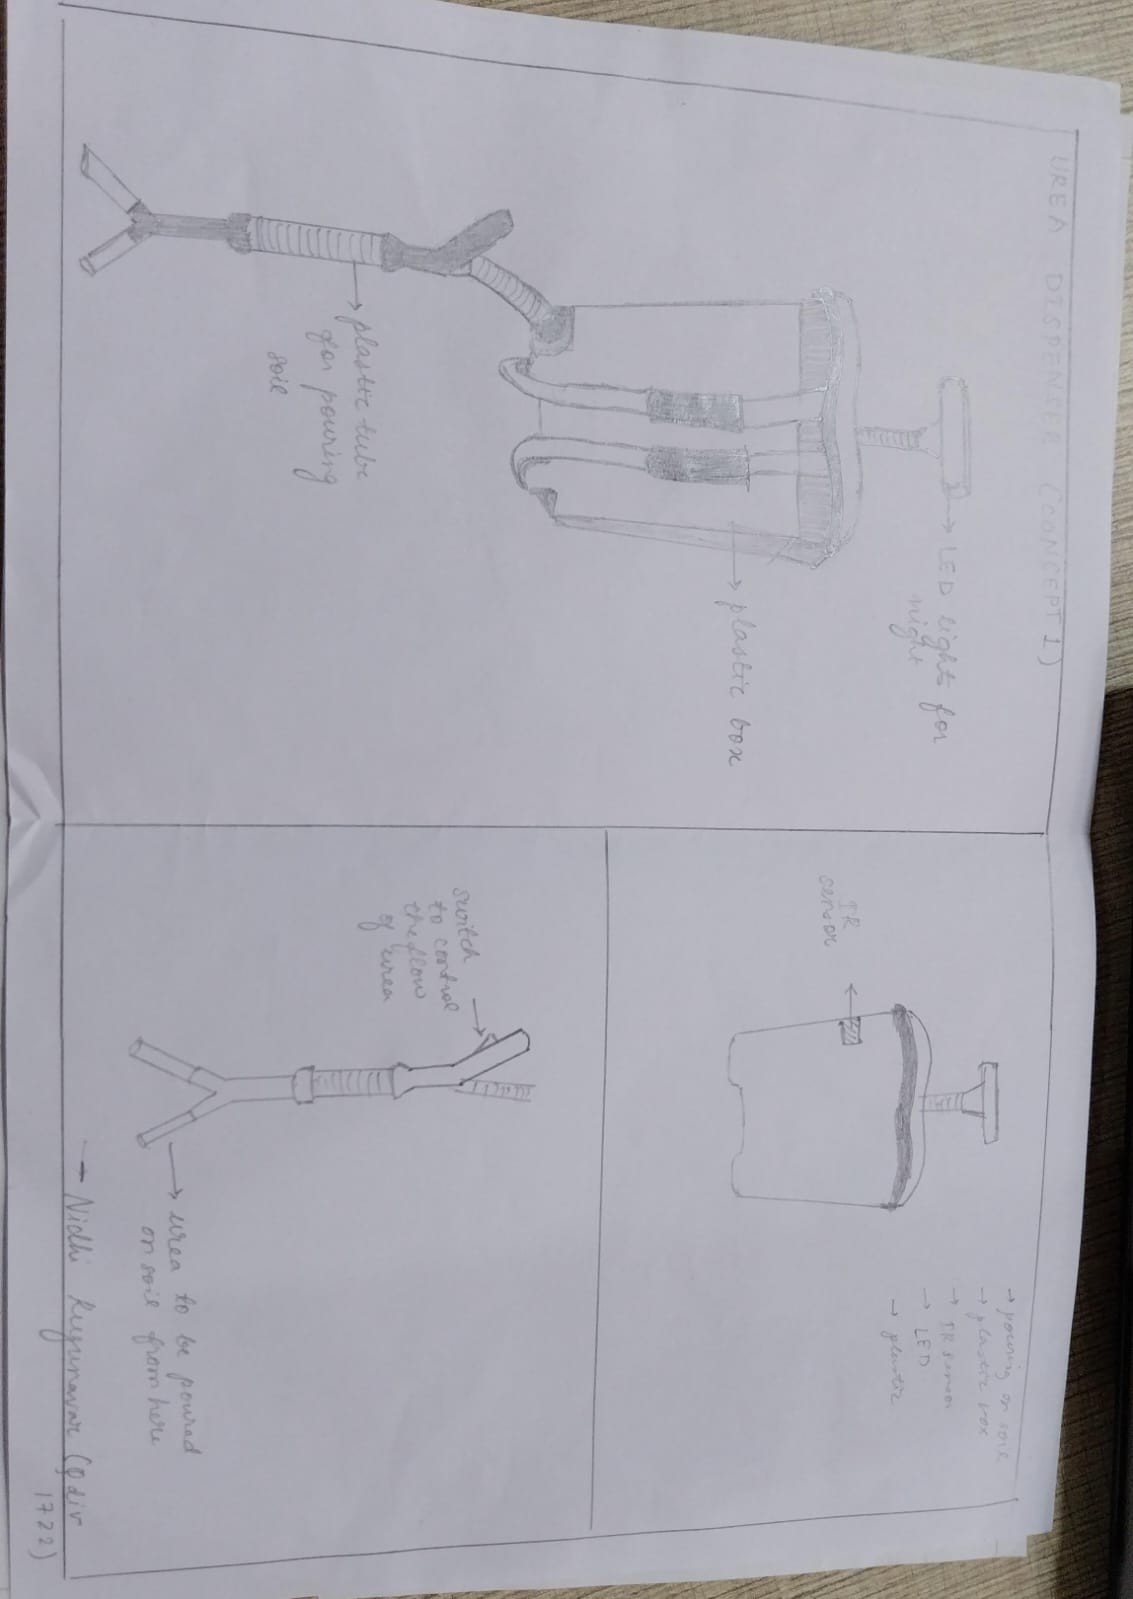 UREA DISPENSER (CONCEPT 1)
→ LED lights for
night
→ plastic box
→ plastic tube
for pouring
soil
IR
sensor
→ pouring on soil
→ plastic box
→ IR sensor
→ LED
→ plastic
switch
to control
the flow
of urea
→ urea to be poured
on soil from here
→ Nidhi
div
1722)